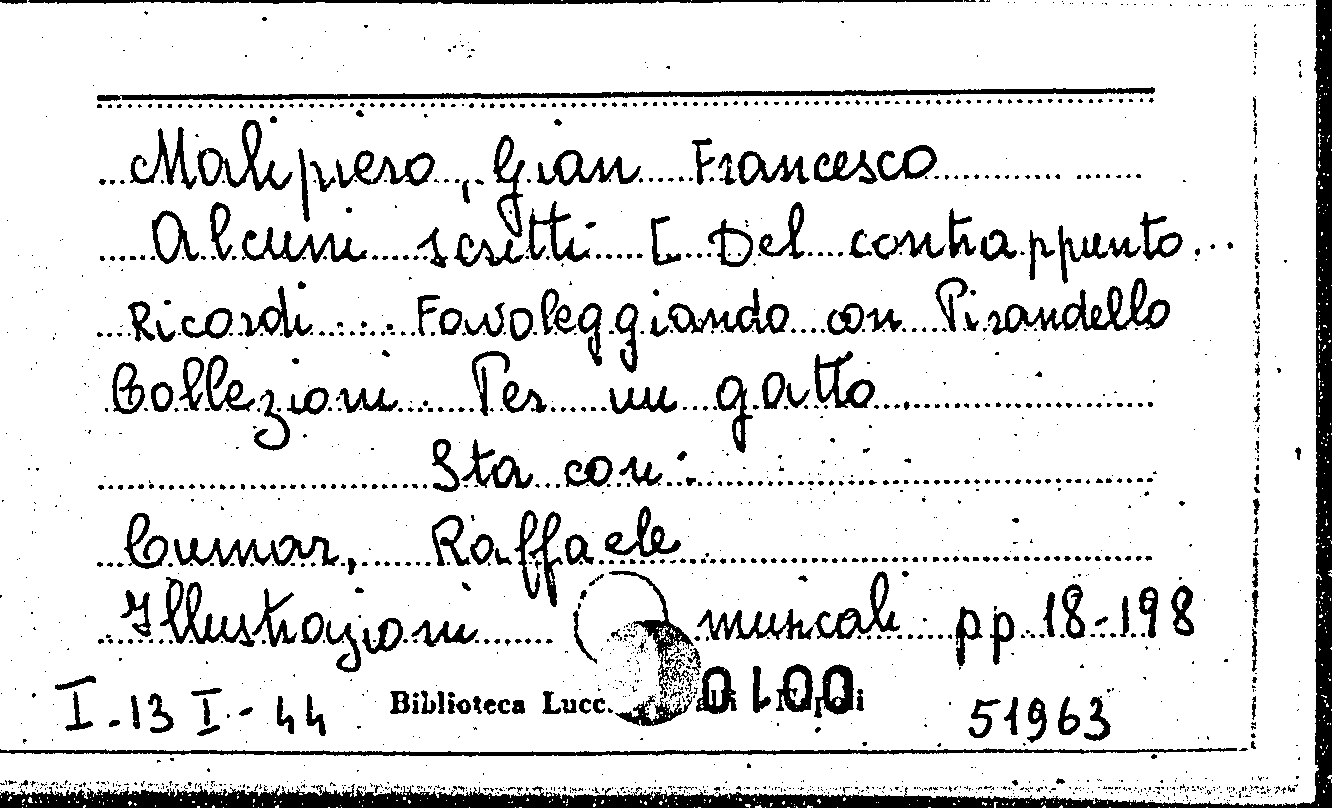 Malipiero, Gian Francesco
Alcuni scritti [ Del contrappunto...
Ricordi... Favoleggiando con Pirandello
Collezioni. Per un gatto.
Sta con:
Cumar, Raffaele
Illustrazioni musicali pp. 18-198
I-13 I-44 Biblioteca Lucc. 0100 51963